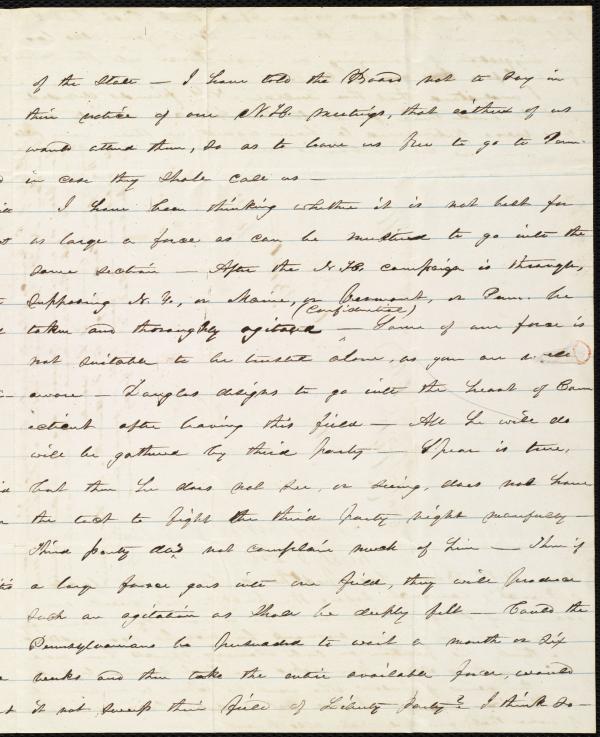 of the State — I have told the Board not to say in
their notice of our N.H. meetings, that either of us
would attend them, so as to leave us free to go to Penn.
in case they shall call us —
I have been thinking whether it is not best for
as large a force as can be mustered to go into the
same section — After the N.H. campaign is through,
supposing N.Y., or Maine, or Vermont, or Penn. be
(Confidential)
taken and thoroughly agitated — Some of our force is
not suitable to be trusted alone, as you are well
aware — Douglas designs to go into the heart of Conn
ecticut after leaving this field — All he will do
will be gathered by third party — Spear is true,
but then he does not see, or seeing, does not have
the tact to fight the third party right manfully —
Third party did not complain much of him — Then if
a large force goes into one field, they will produce
such an agitation as shall be deeply felt — Could the
Pennsylvanians be persuaded to wait a month or six
weeks and then take the entire available force, would
it not sweep their field of Liberty party? I think so —